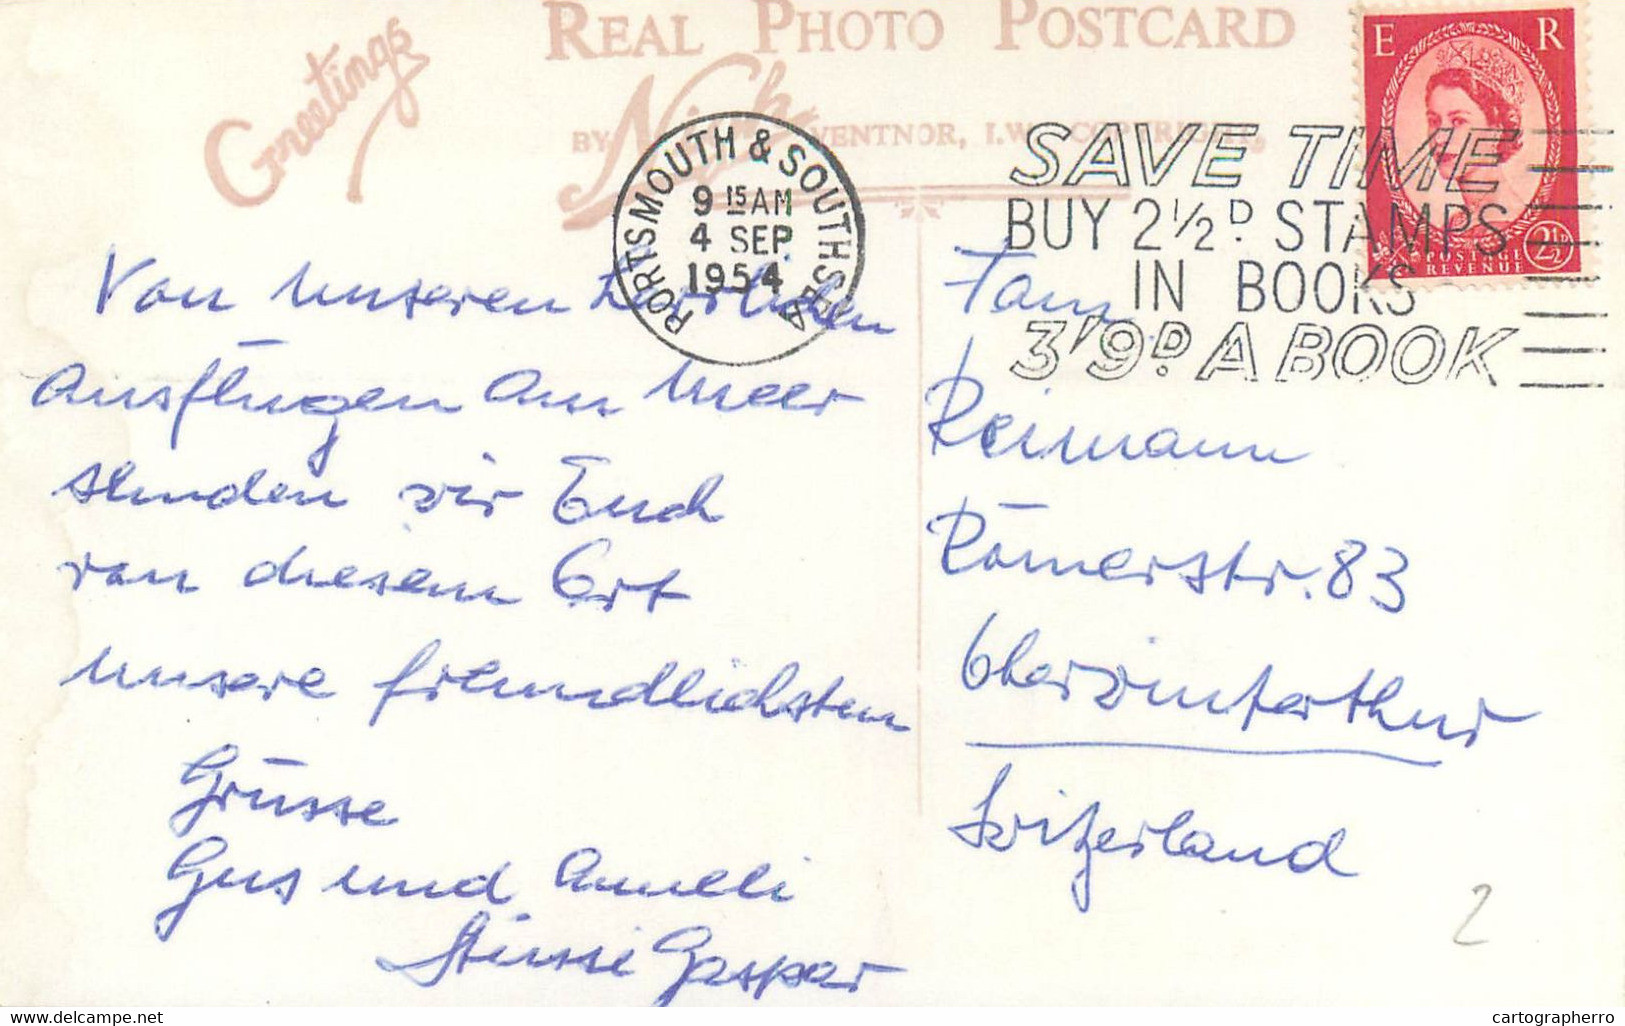 Greetings
REAL PHOTO POSTCARD
BY Nigh VENTNOR, I.W. COPYRIGHT,
PORTSMOUTH & SOUTHSEA
9 15 AM
4 SEP.
1954
SAVE TIME
BUY 2½D STAMPS
IN BOOKS
3'9D A BOOK
E R
POSTAGE
REVENUE
2½D
Von unseren herrlichen
Ausflügen am Meer
senden wir Euch
von diesem Ort
unsere freundlichsten
Grüsse
Gus und Anneli
Stüssi Gaspar
Fam.
Reimann
Römerstr. 83
Oberwinterthur
Switzerland
2
www.delcampe.net
cartographerro